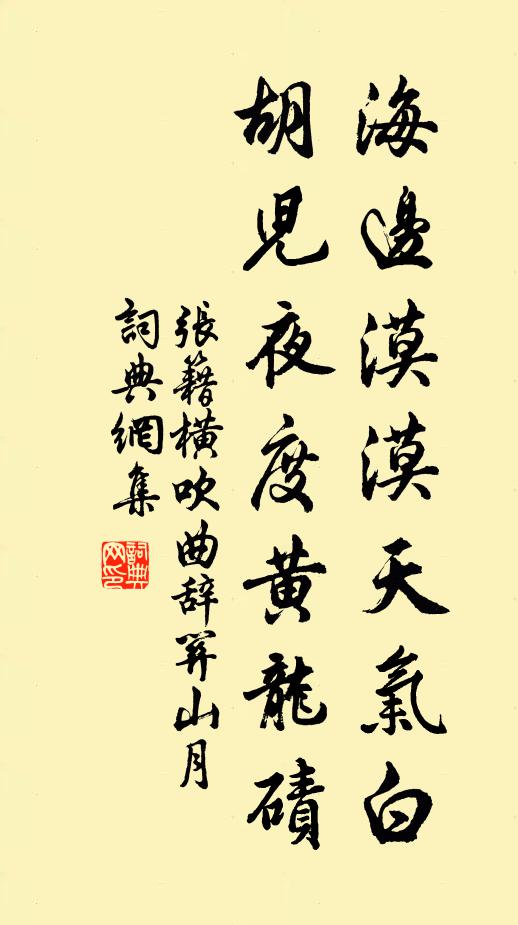 海邊漠漠天氣白
胡児夜度黃龍磧
張籍橫吹曲辞関山月
詞典網集
詞典
网印